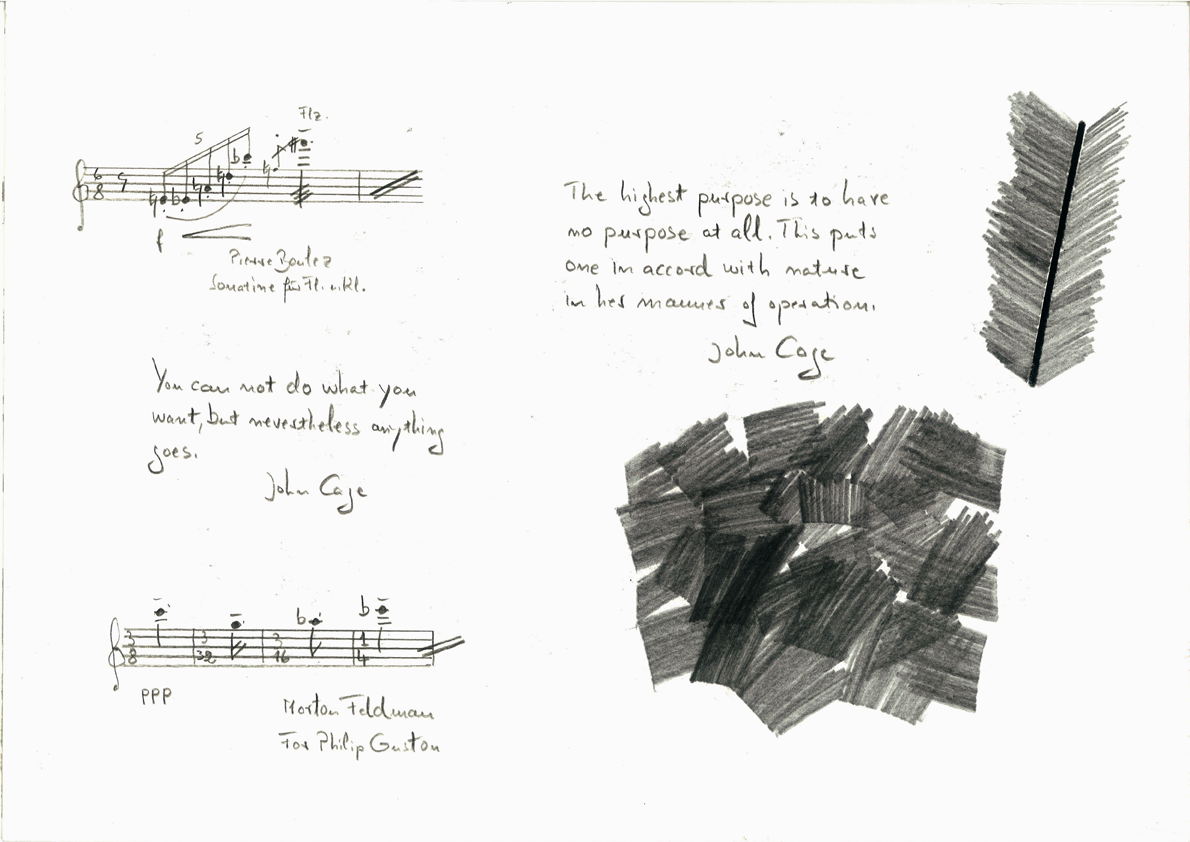 Flz.
5
6
8
f
Pierre Boulez
Sonatine für Fl. u. Kl.
You can not do what you
want, but nevertheless anything
goes.
John Cage
3
8
3
32
3
16
1
4
ppp
Morton Feldman
For Philip Guston
The highest purpose is to have
no purpose at all. This puts
one in accord with nature
in her manner of operation.
John Cage